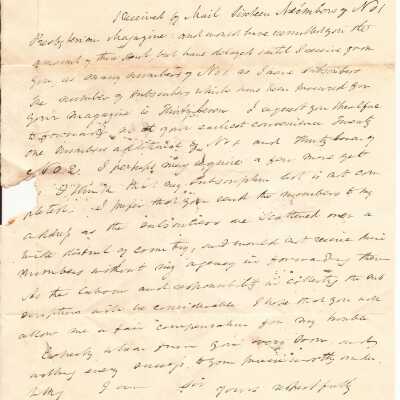 Received by Mail Sixteen Numbers of No 1
Presbyterian Magazine and would have remitted you the
amount of this but have delayed until I receive from
you as many numbers of No 1 as I have subscribers
The number of subscribers which have been procured for
your magazine is Thirty seven I request you therefore
to forward at your earliest convenience Twenty
one Numbers additional of No 1 and Thirty seven of
No 2. I perhaps may require a few more yet
I think that my subscription list is not com
pleted. I prefer that you send the numbers to my
address as the subscribers are scattered over a
wide district of country, and would not receive their
Numbers without my agency in forwarding them
As the labour and responsibility in collecting the sub
scriptions will be considerable I hope that you will
allow me a fair compensation for my trouble
hear from you very soon and
wishing every success to your praiseworthy under
taking I am Sir yours respectfully